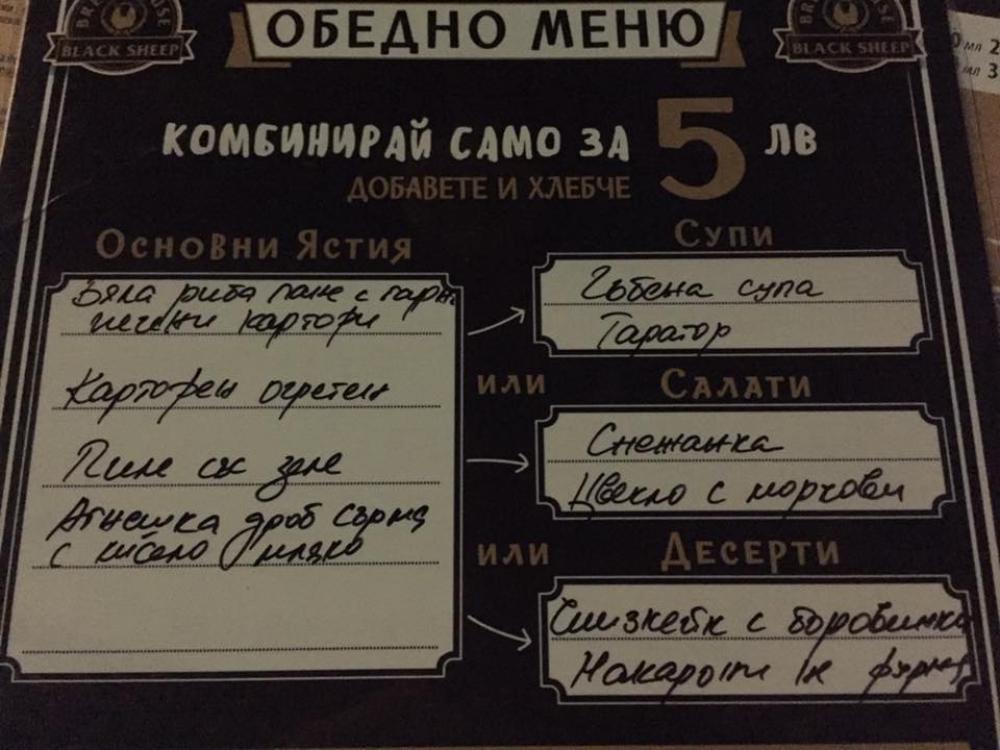 BLACK SHEEP
ОБЕДНО МЕНЮ
BLACK SHEEP
КОМБИНИРАЙ САМО ЗА 5 ЛВ
ДОБАВЕТЕ И ХЛЕБЧЕ
Основни Ястия
Бяла риба пане с гарн.
печени картофи
Картофен огретен
Пиле със зеле
Агнешка дроб сърма
с кисело мляко
Супи
Гъбена супа
Таратор
или
Салати
Снежанка
Цвекло с моркови
или
Десерти
Чийзкейк с боровинки
Макарони на фурна